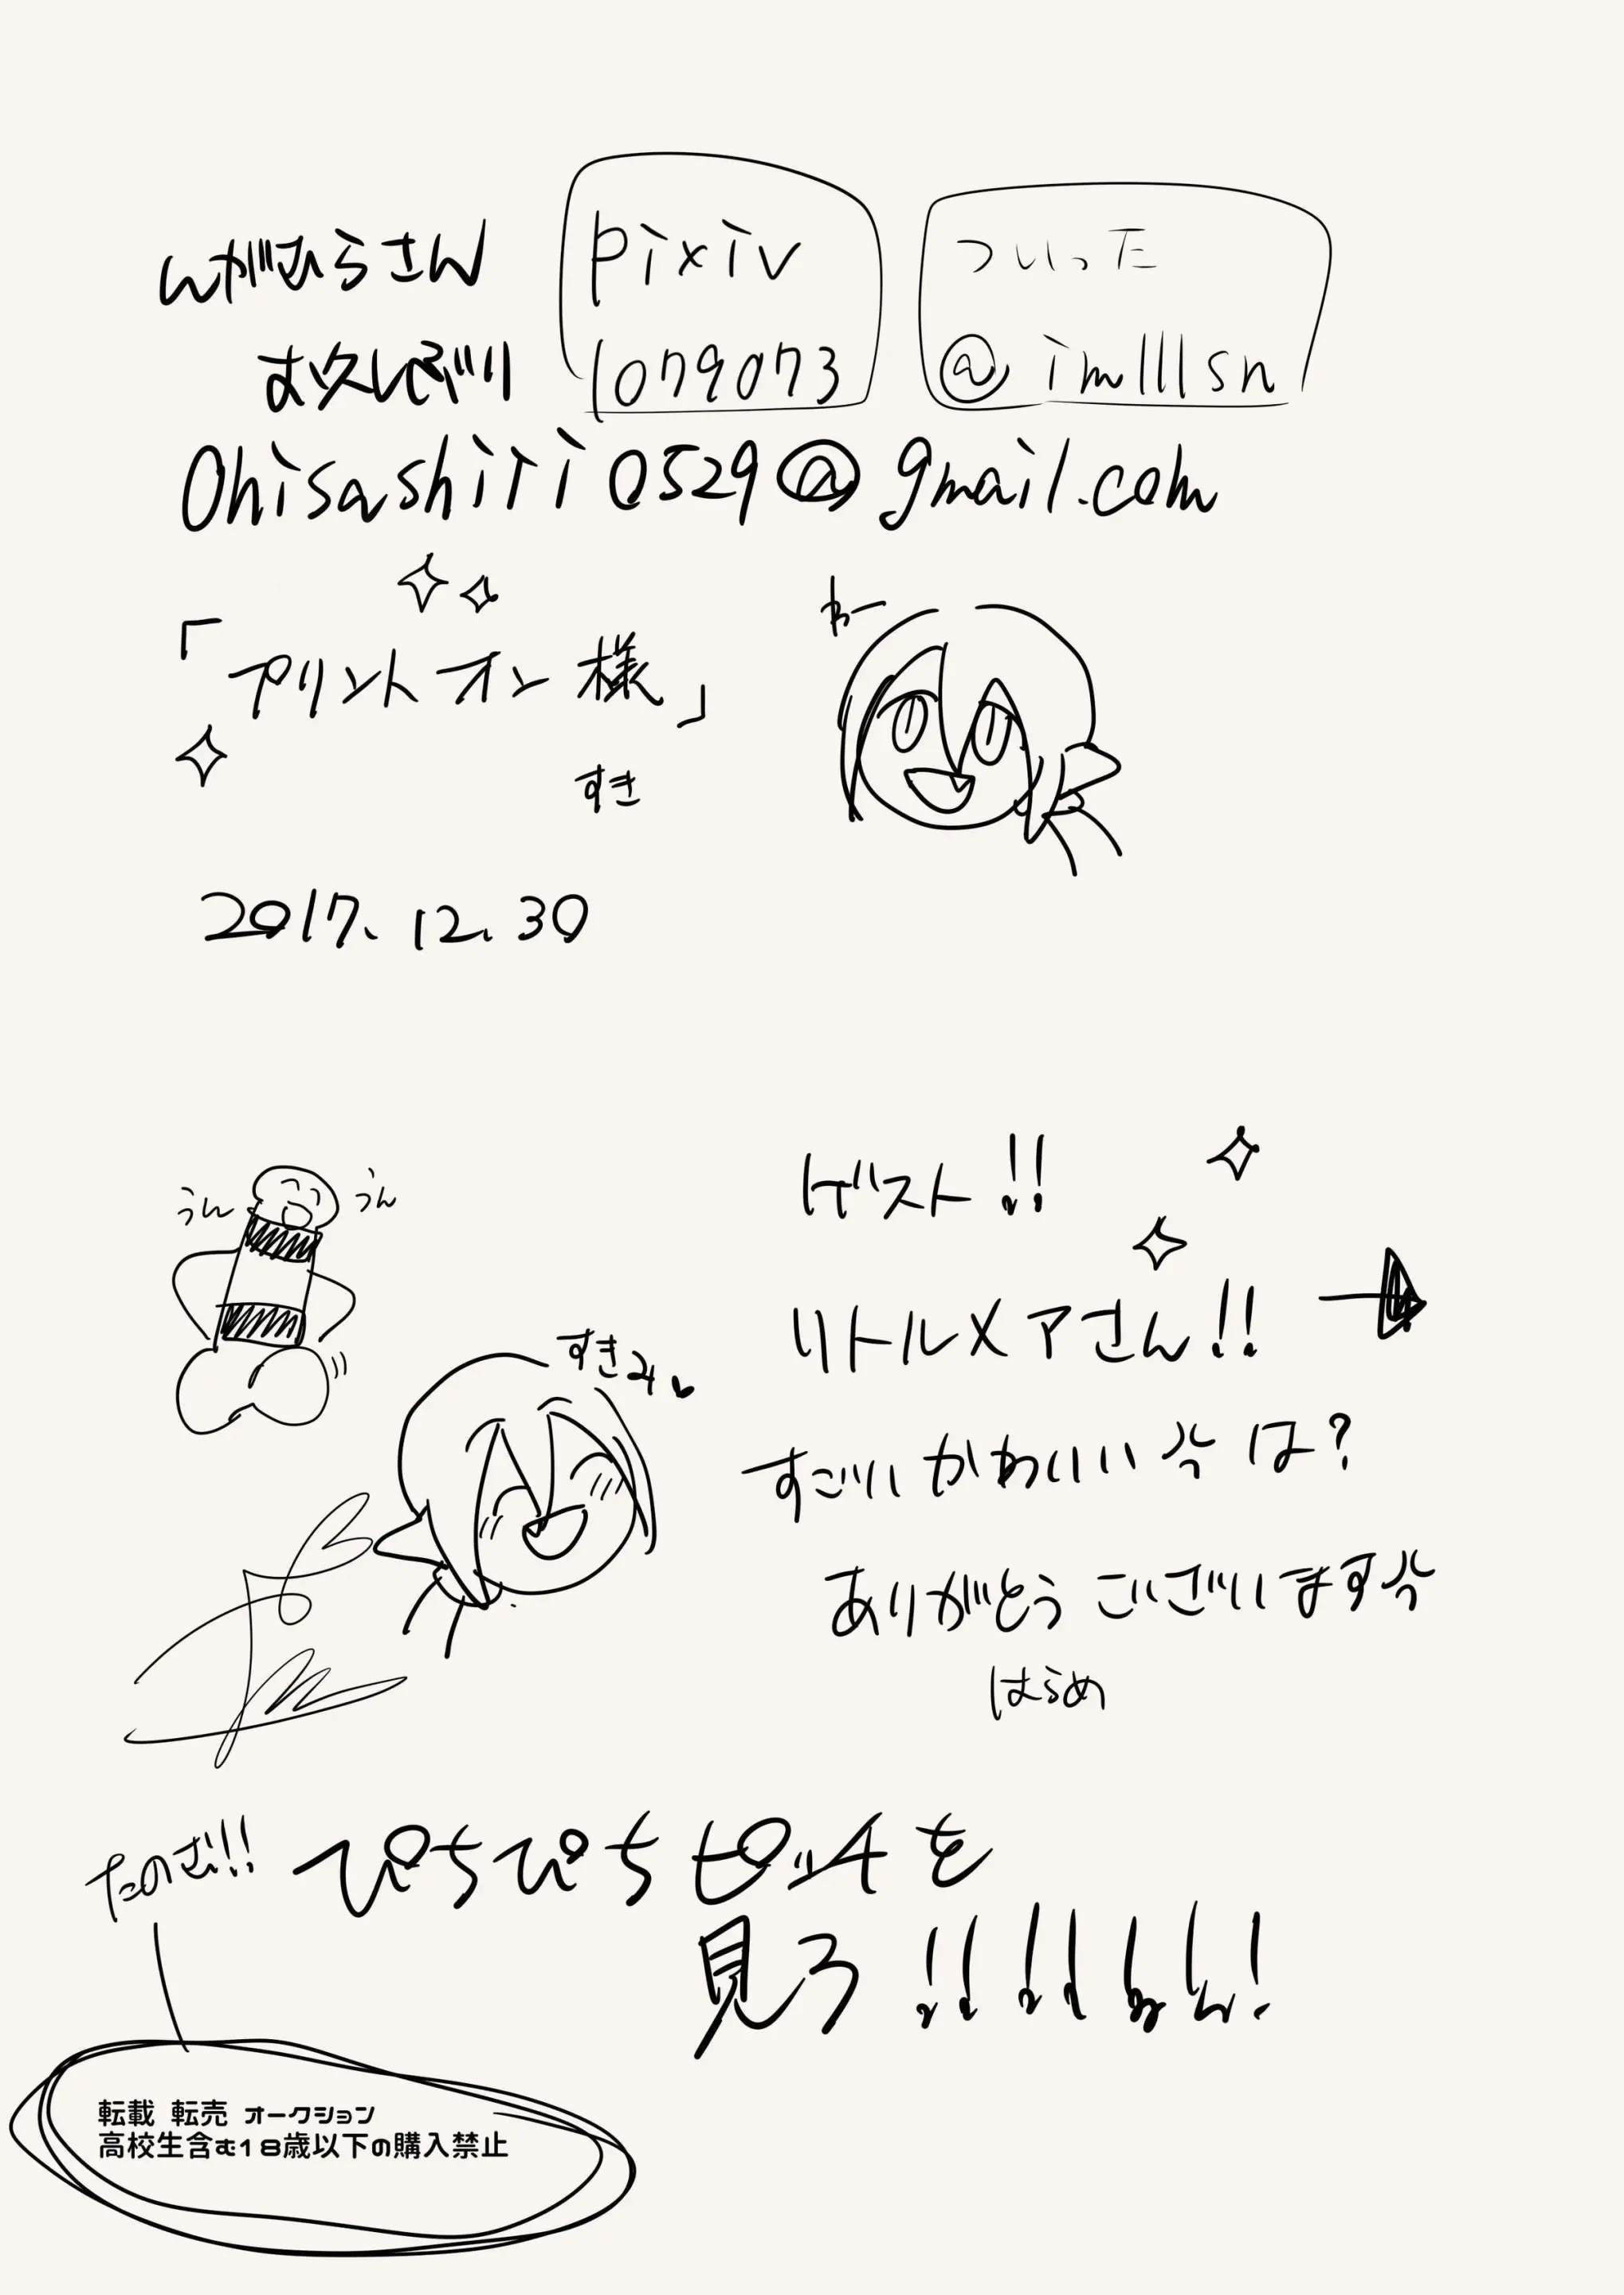 pixiv
1079073
ついった
@imlllsn
Ohisashiri0529@gmail.com
「プリントオン様」
すき
わー
2017.12.30
うん
うん
ゲスト!!
リトルメアさん!!
すきみ
すごいかわいい は?
ありがとうございます
はらめ
たのむ!!
ぴちぴちピッチを
見ろ!!!!!!!
転載 転売 オークション
高校生含む18歳以下の購入禁止